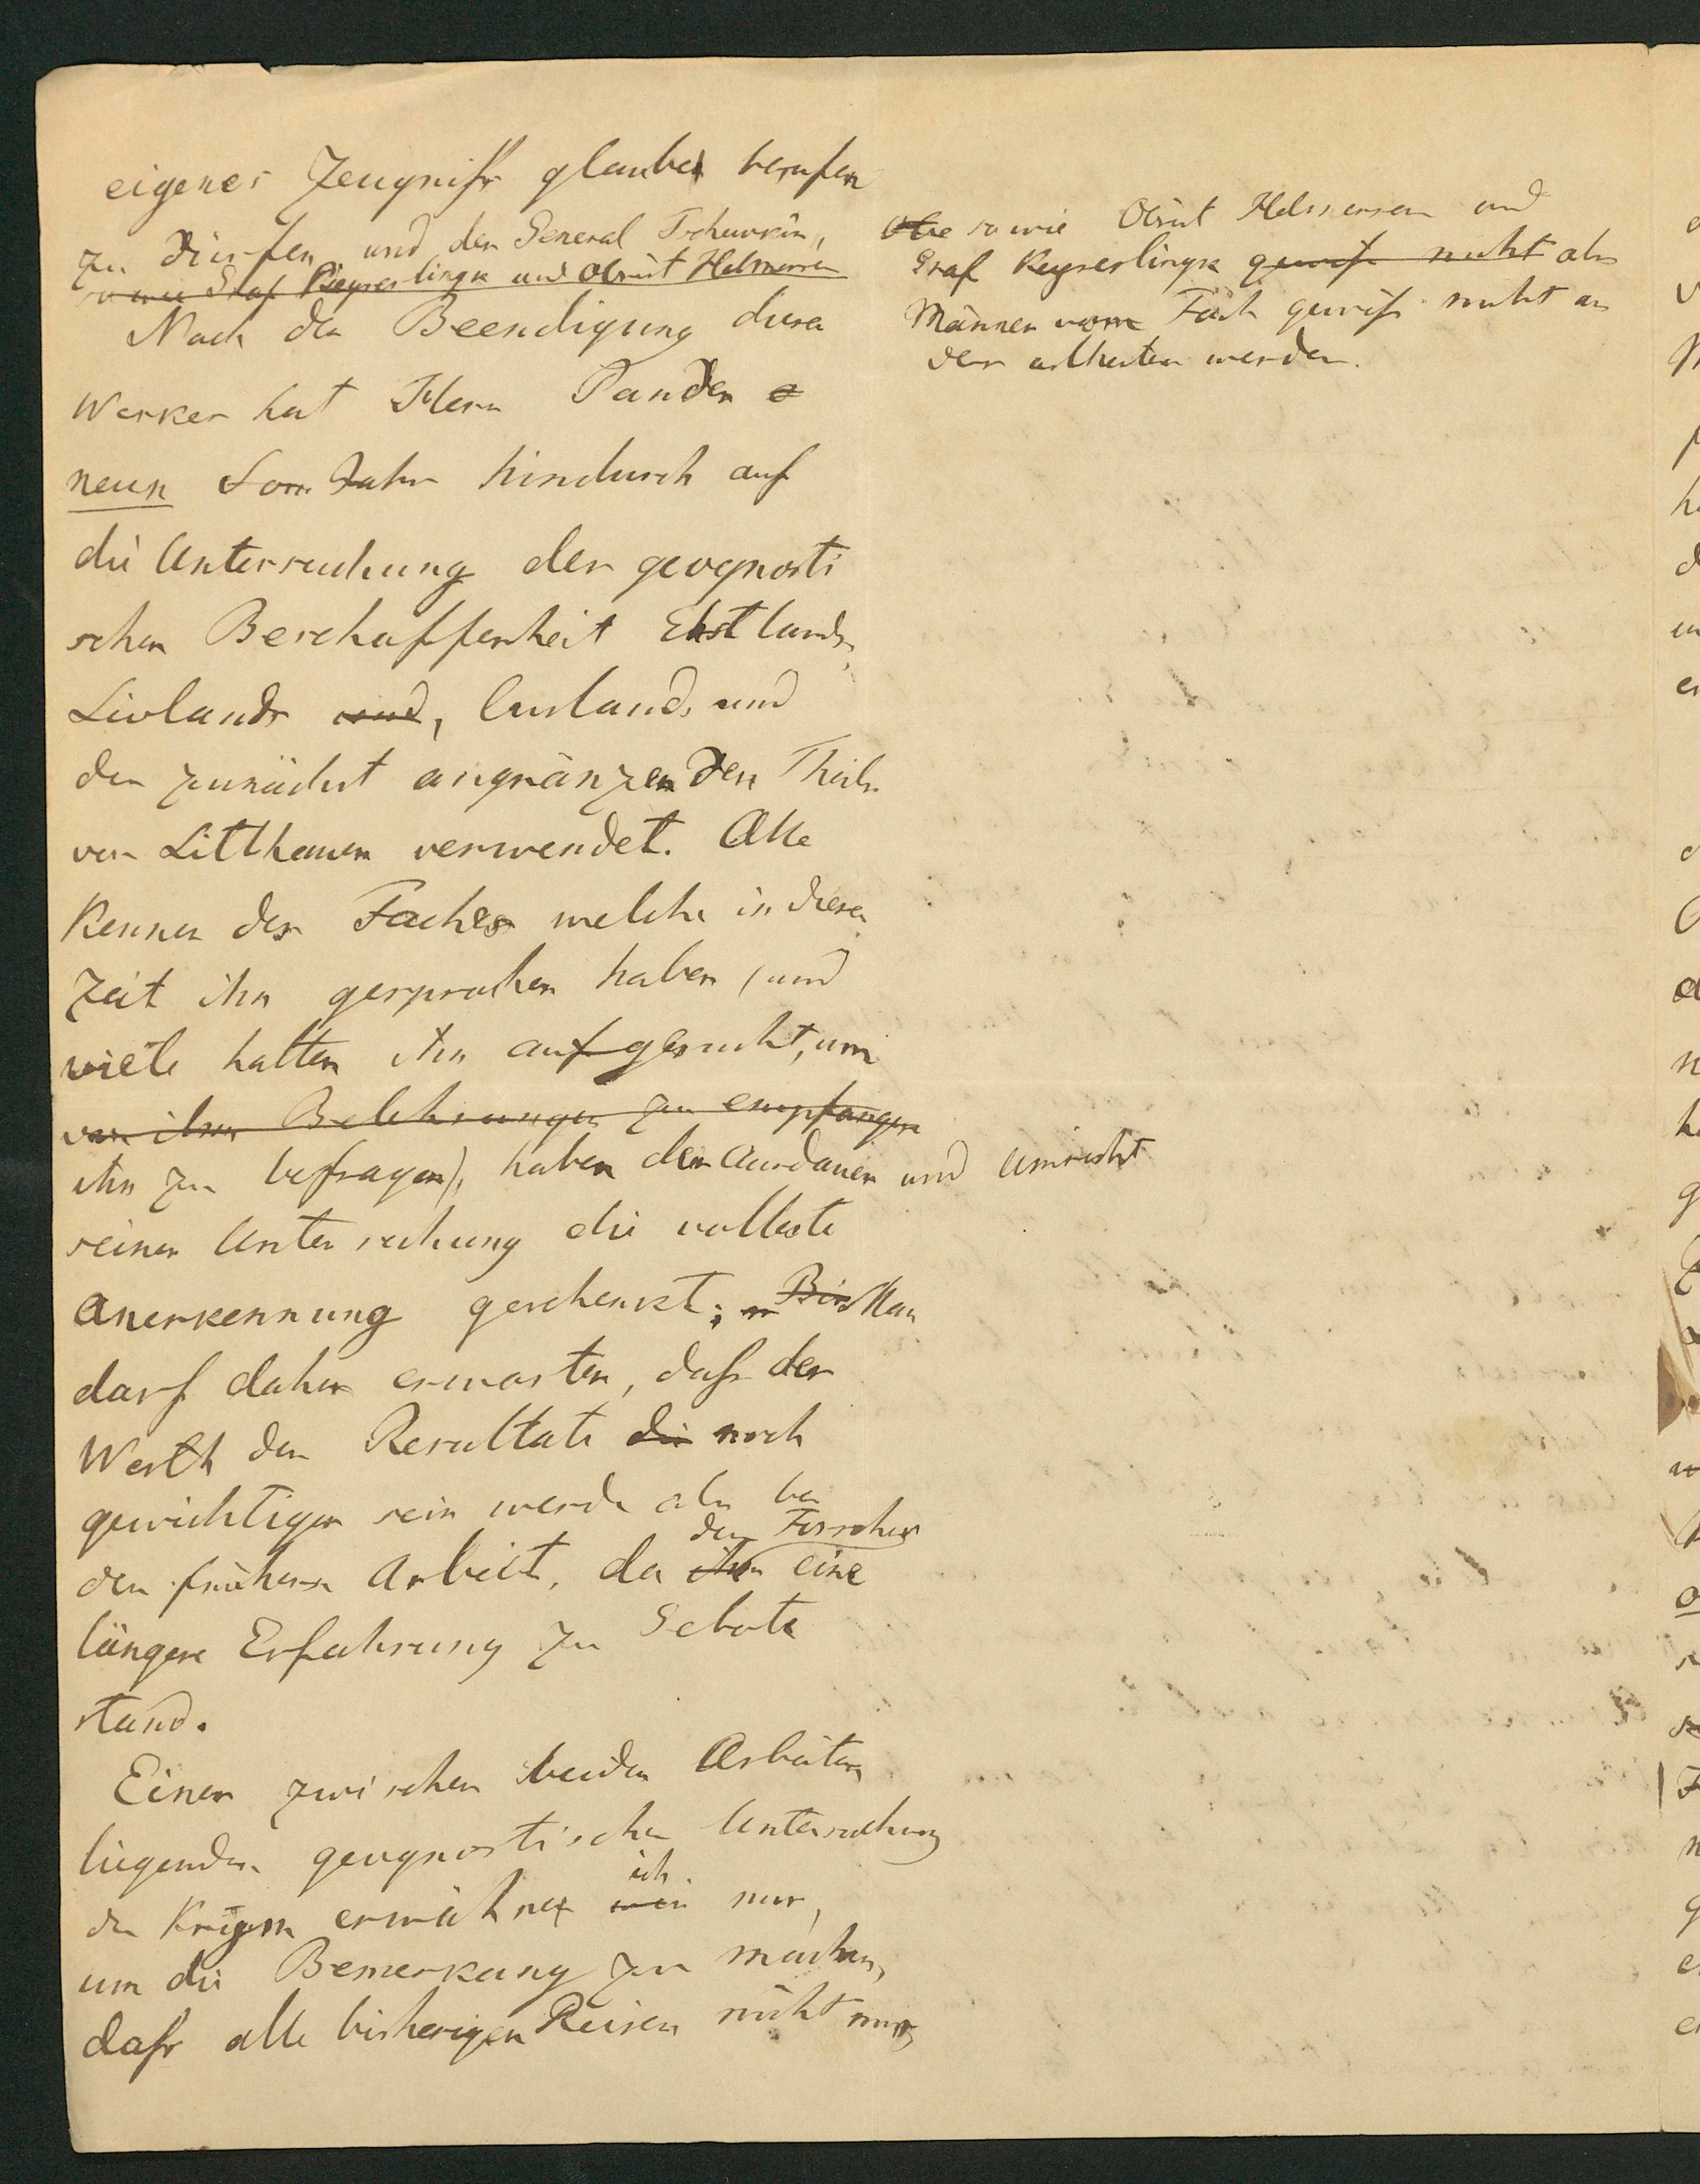 eigenes Zeugniss glaube berufen
zu dürfen, und der General Tschewkin,
so wie Graf Keyserlingk und Obrist Helmersen
Obe so wie Obrist Helmersen und
Graf Keyserlingk gewiss nicht als
Männer vom Fach gewiss nicht an
ders urtheilen werden.
Nach der Beendigung dieses
Werkes hat Herr Pander
neun Som Jahre hindurch auf
die Untersuchung der geognosti
schen Beschaffenheit Ehstlands,
Livlands und, Curlands und
der zunächst angränzenden Theile
von Litthauen verwendet. Alle
Kenner des Faches welche in dieser
Zeit ihn gesprochen haben (und
viele hatten ihn aufgesucht, um
von ihm Belehrungen zu empfangen
ihn zu befragen), haben der Ausdauer und Umsicht
seiner Untersuchung die vollste
Anerkennung geschenkt; Bis Man
darf daher erwarten, dass der
Werth der Resultate die noch
gewichtiger sein werde als bei
der früheren Arbeit, da ihm dem Forscher eine
längere Erfahrung zu Gebote
stand.
Einer zwischen beiden Arbeiten
liegenden geognostischen Untersuchung
der Krym erwähne ich nur,
um die Bemerkung zu machen,
dass alle bisherigen Reisen nicht nur